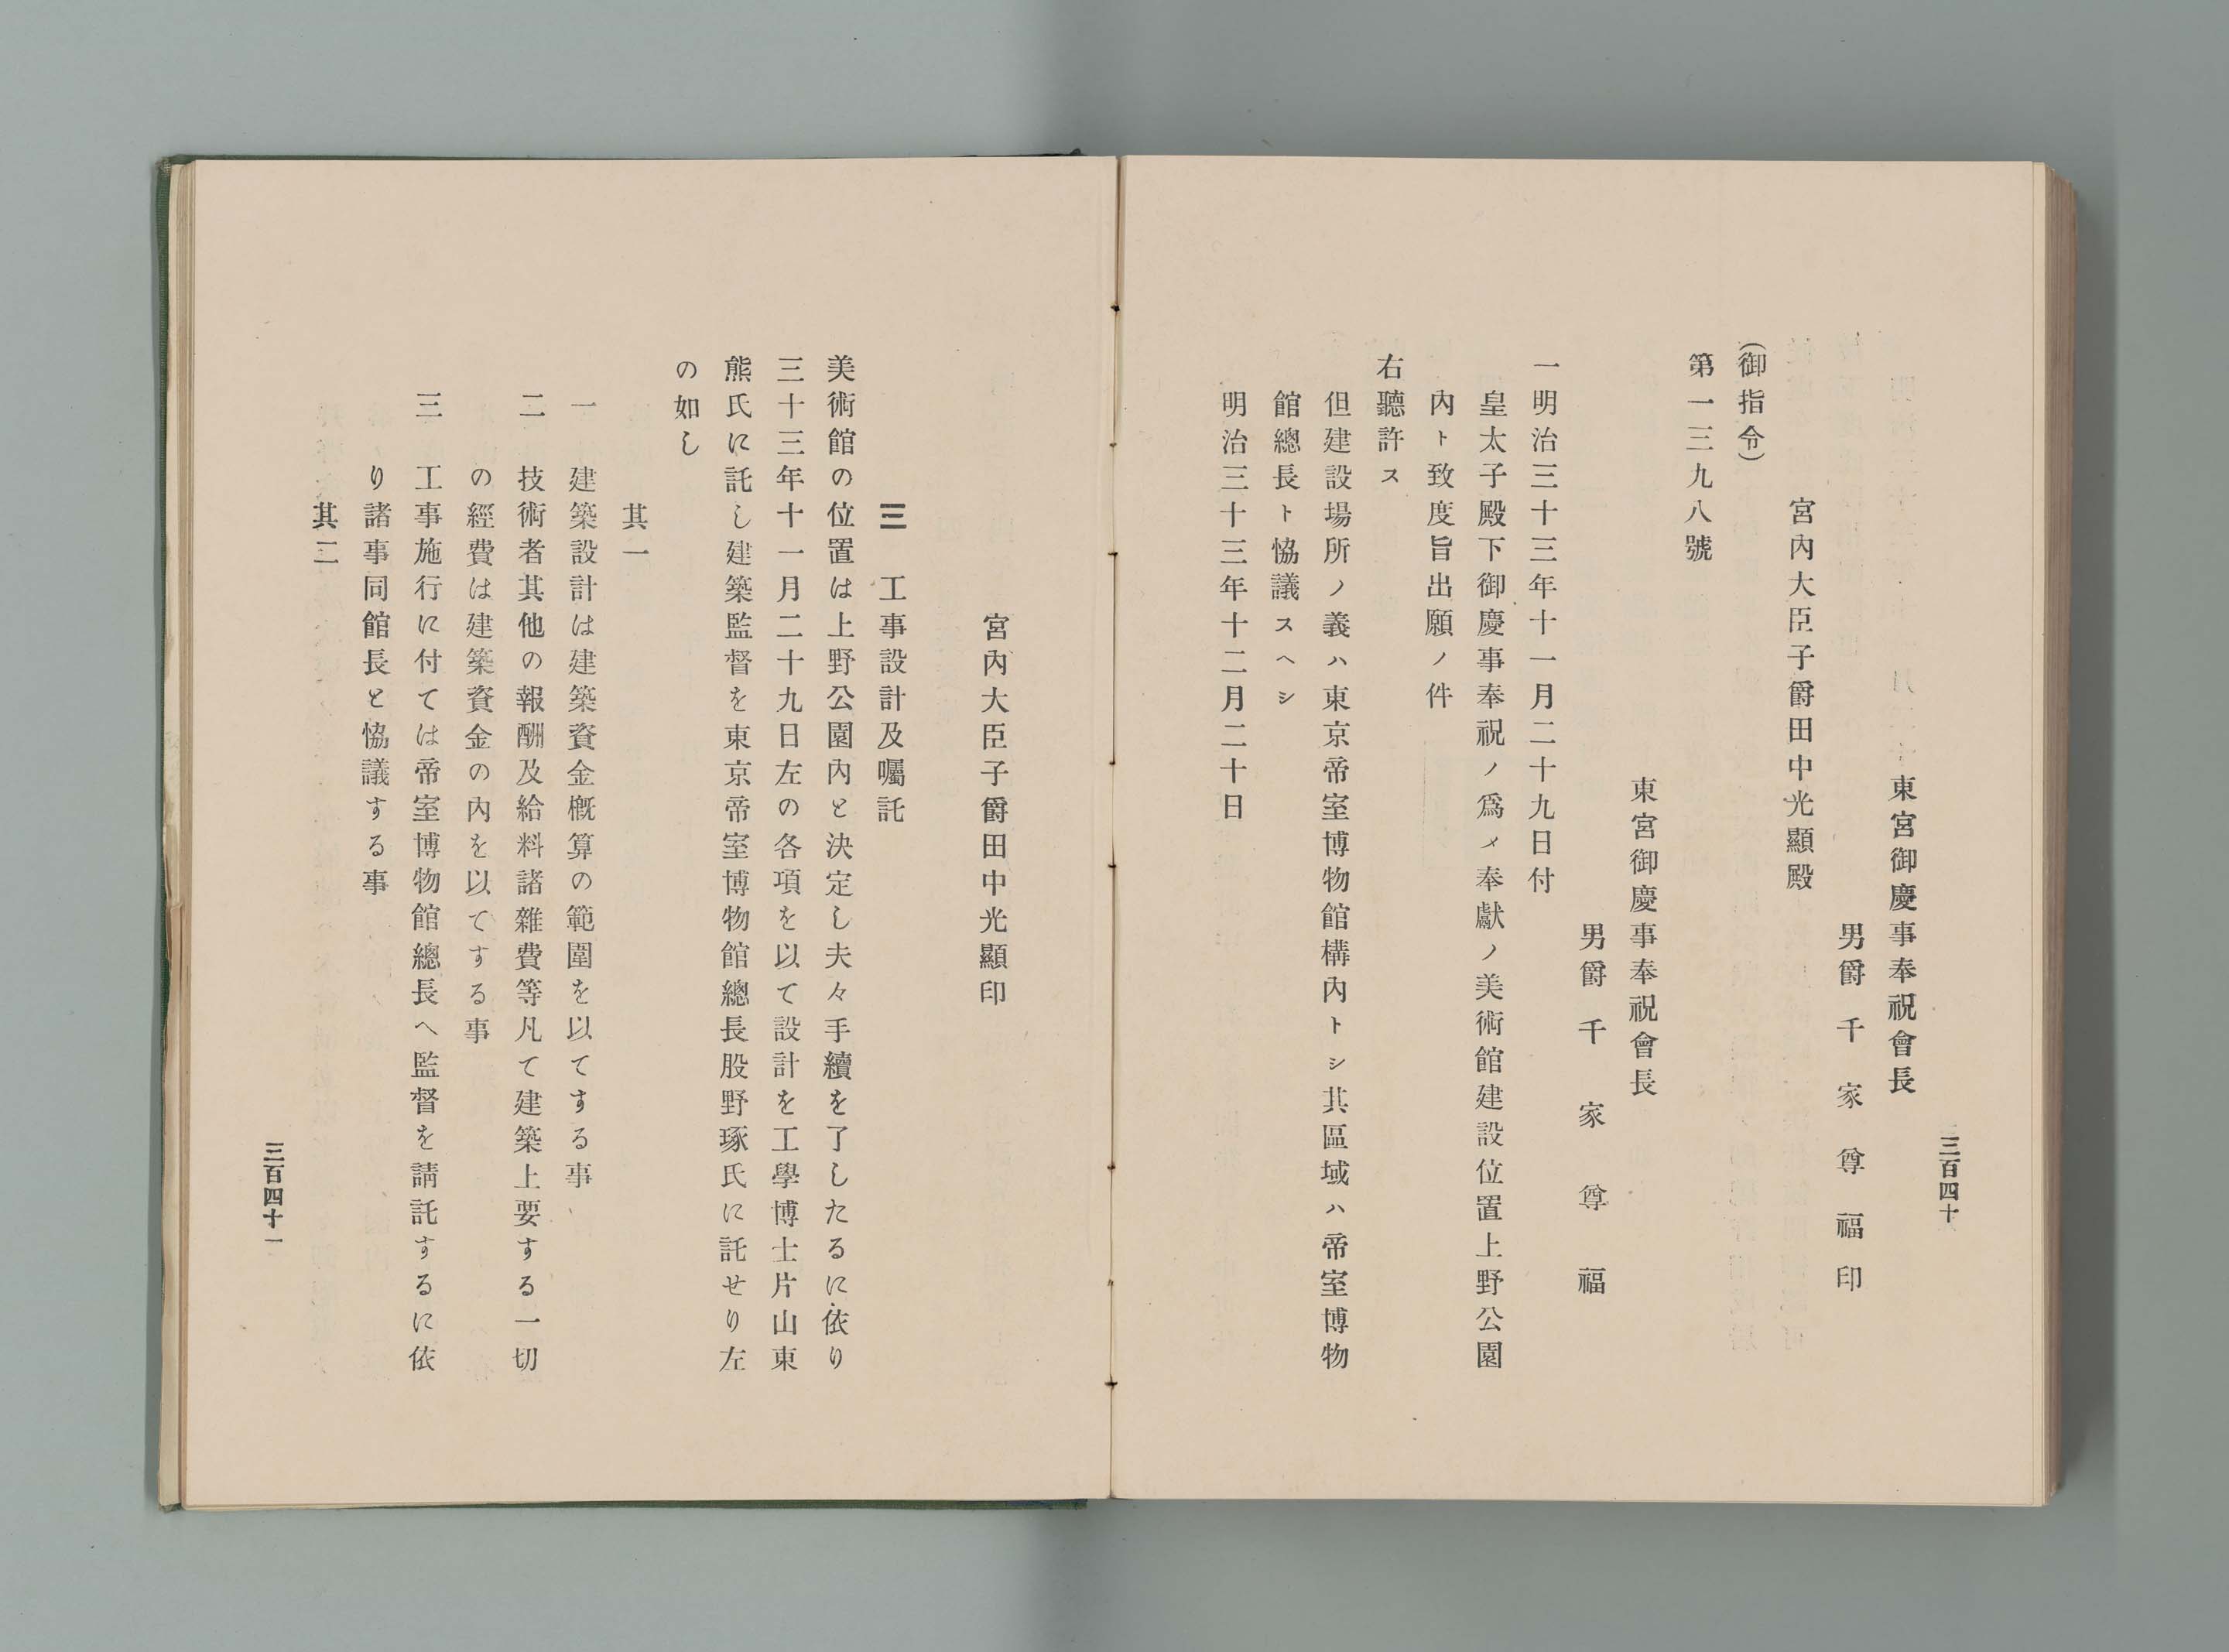 三百四十
東宮御慶事奉祝會長
男爵 千家尊福印
宮內大臣子爵田中光顯殿
(御指令)
第一三九八號
東宮御慶事奉祝會長
男爵 千家尊福
一明治三十三年十一月二十九日付
皇太子殿下御慶事奉祝ノ爲メ奉獻ノ美術館建設位置上野公園
內ト致度旨出願ノ件
右聽許ス
但建設場所ノ義ハ東京帝室博物館構內トシ其區域ハ帝室博物
館總長ト恊議スヘシ
明治三十三年十二月二十日
宮內大臣子爵田中光顯印
三 工事設計及囑託
美術館の位置は上野公園內と決定し夫々手續を了したるに依り
三十三年十一月二十九日左の各項を以て設計を工學博士片山東
熊氏に託し建築監督を東京帝室博物館總長股野琢氏に託せり左
の如し
其一
一 建築設計は建築資金槪算の範圍を以てする事
二 技術者其他の報酬及給料諸雜費等凡て建築上要する一切
の經費は建築資金の內を以てする事
三 工事施行に付ては帝室博物館總長へ監督を請託するに依
り諸事同館長と恊議する事
其二
三百四十一